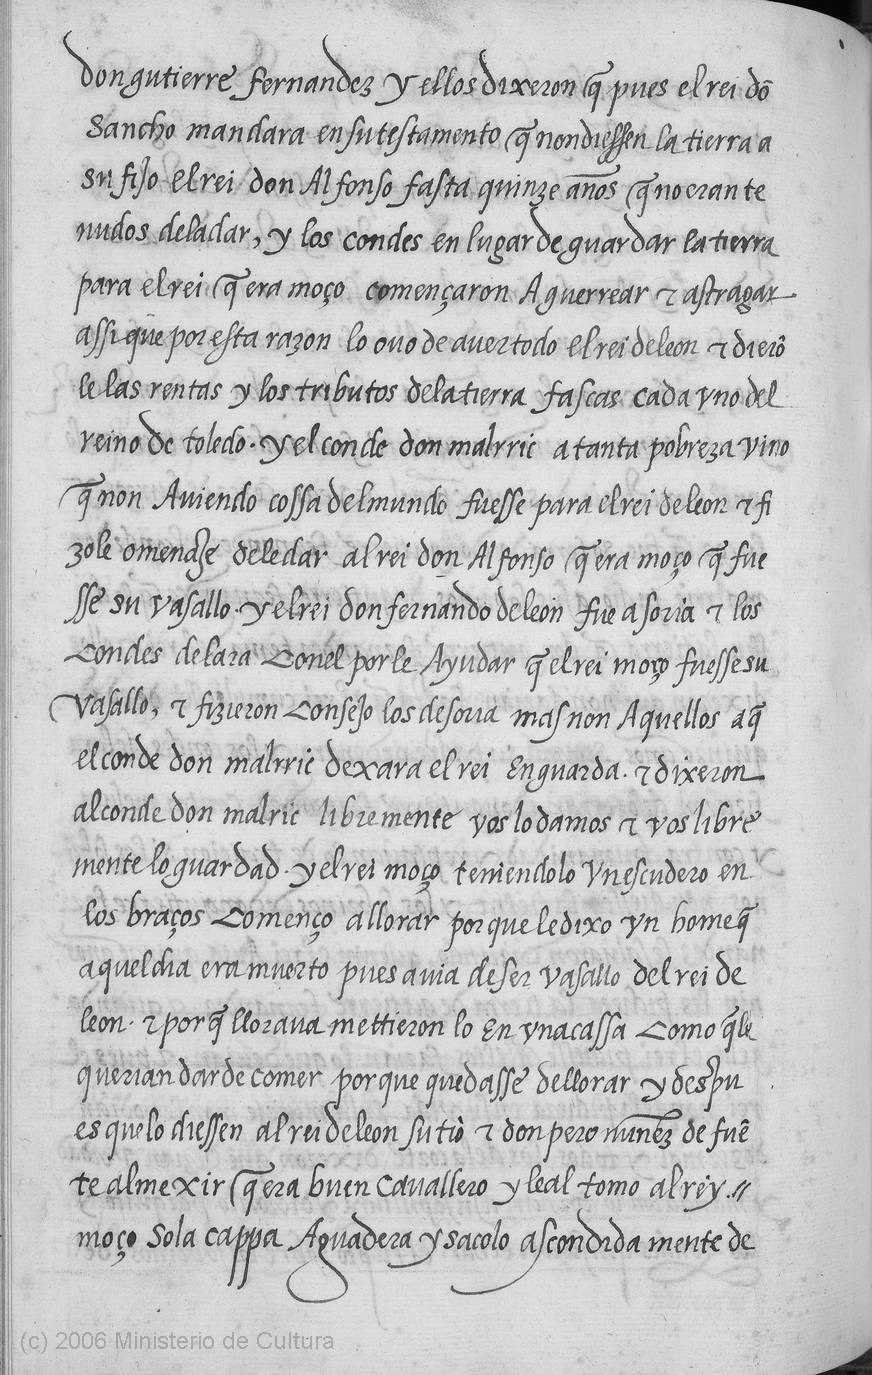 don gutierre fernandez y ellos dixeron q̃ pues el rei dõ
Sancho mandara en su testamento q̃ non diessen la tierra a
su fijo el rei don Alfonso fasta quinze años q̃ no eran te
nudos de la dar, y los condes en lugar de guardar la tierra
para el rei q̃ era moço començaron A guerrear ⁊ astragar
assi que por esta razon lo ovo de aver todo el rei de leon ⁊ dierõ
le las rentas y los tributos de la tierra fascas cada vno del
reino de toledo. y el conde don malrric a tanta pobreza vino
q̃ non Aviendo cossa del mundo fuesse para el rei de leon ⁊ fi
zole omenaze de le dar al rei don Alfonso q̃ era moço q̃ fue
sse su vasallo. y el rei don fernando de leon fue a soria ⁊ los
Condes de lara Con el por le Ayudar q̃ el rei moço fuesse su
Vasallo, ⁊ fizieron Consejo los de soria mas non Aquellos a q̃
el conde don malrric dexara el rei En guarda. ⁊ dixeron
al conde don malric libremente vos lo damos ⁊ vos libre
mente lo guardad. y el rei moço teniendolo Vn escudero en
los braços Començo a llorar por que le dixo vn home q̃
aquel dia era muerto pues avia de ser vasallo del rei de
leon. ⁊ por q̃ llorava mettieron lo En vna cassa Como q̃ le
querian dar de comer por que quedasse de llorar y despu
es que lo diessen al rei de leon su tio ⁊ don pero nunez de fuẽ
te almexir q̃ era buen Cavallero y leal tomo al rey. //
moço Sola cappa Aguadera y sacolo ascondida mente de
(c) 2006 Ministerio de Cultura